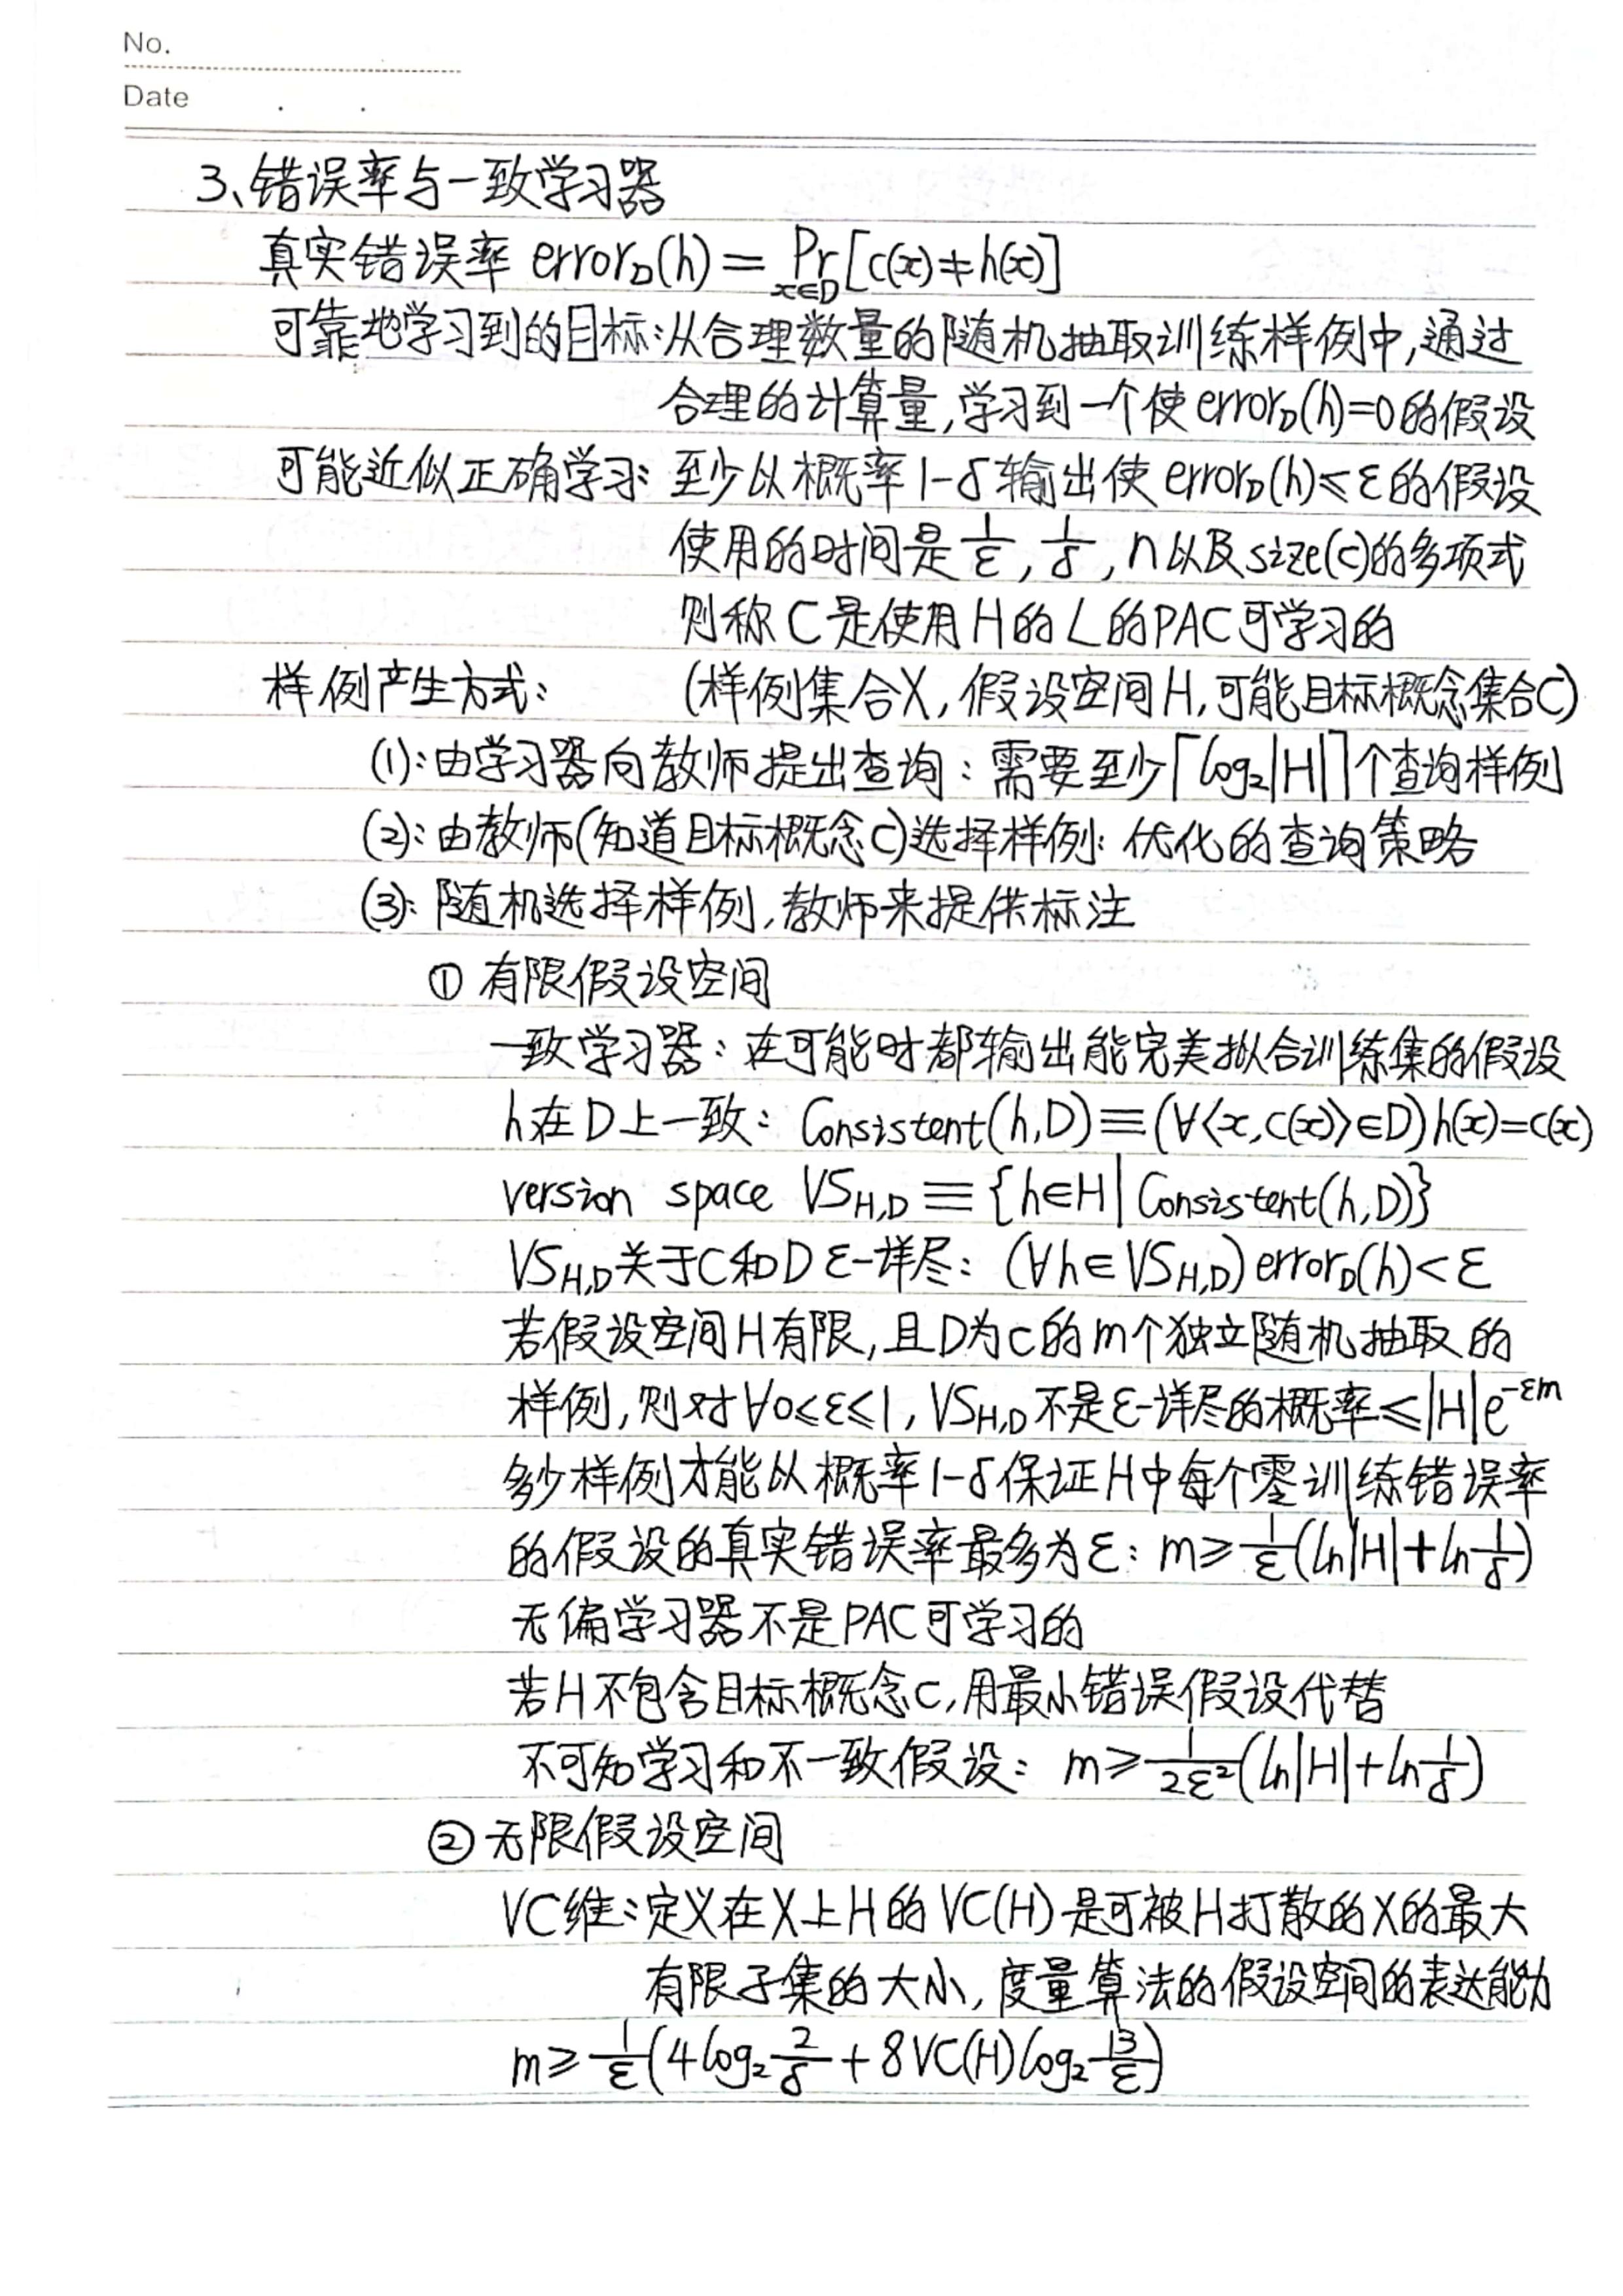 No.
Date . .
3、错误率与一致学习器
真实错误率 error_D(h) = Pr_{x∈D}[c(x)≠h(x)]
可靠地学习到的目标:从合理数量的随机抽取训练样例中,通过
合理的计算量,学习到一个使error_D(h)=0的假设
可能近似正确学习: 至少以概率1-δ输出使error_D(h)≤ε的假设
使用的时间是 1/ε, 1/δ, n以及size(c)的多项式
则称C是使用H的L的PAC可学习的
样例产生方式: (样例集合X,假设空间H,可能目标概念集合C)
(1):由学习器向教师提出查询:需要至少⌈log₂|H|⌉个查询样例
(2):由教师(知道目标概念C)选择样例:优化的查询策略
(3):随机选择样例,教师来提供标注
① 有限假设空间
一致学习器:在可能时都输出能完美拟合训练集的假设
h在D上一致: Consistent(h,D)≡(∀<x,c(x)>∈D)h(x)=c(x)
version space VS_{H,D}≡{h∈H|Consistent(h,D)}
VS_{H,D}关于C和D ε-详尽: (∀h∈VS_{H,D})error_D(h)<ε
若假设空间H有限,且D为c的m个独立随机抽取的
样例,则对∀0≤ε≤1,VS_{H,D}不是ε-详尽的概率≤|H|e^{-εm}
多少样例才能以概率1-δ保证H中每个零训练错误率
的假设的真实错误率最多为ε: m≥1/ε(ln|H|+ln 1/δ)
无偏学习器不是PAC可学习的
若H不包含目标概念c,用最小错误假设代替
不可知学习和不一致假设: m≥1/(2ε²)(ln|H|+ln 1/δ)
② 无限假设空间
VC维:定义在X上H的VC(H)是可被H打散的X的最大
有限子集的大小,度量算法的假设空间的表达能力
m≥1/ε(4log₂ 2/δ + 8VC(H)log₂ 13/ε)